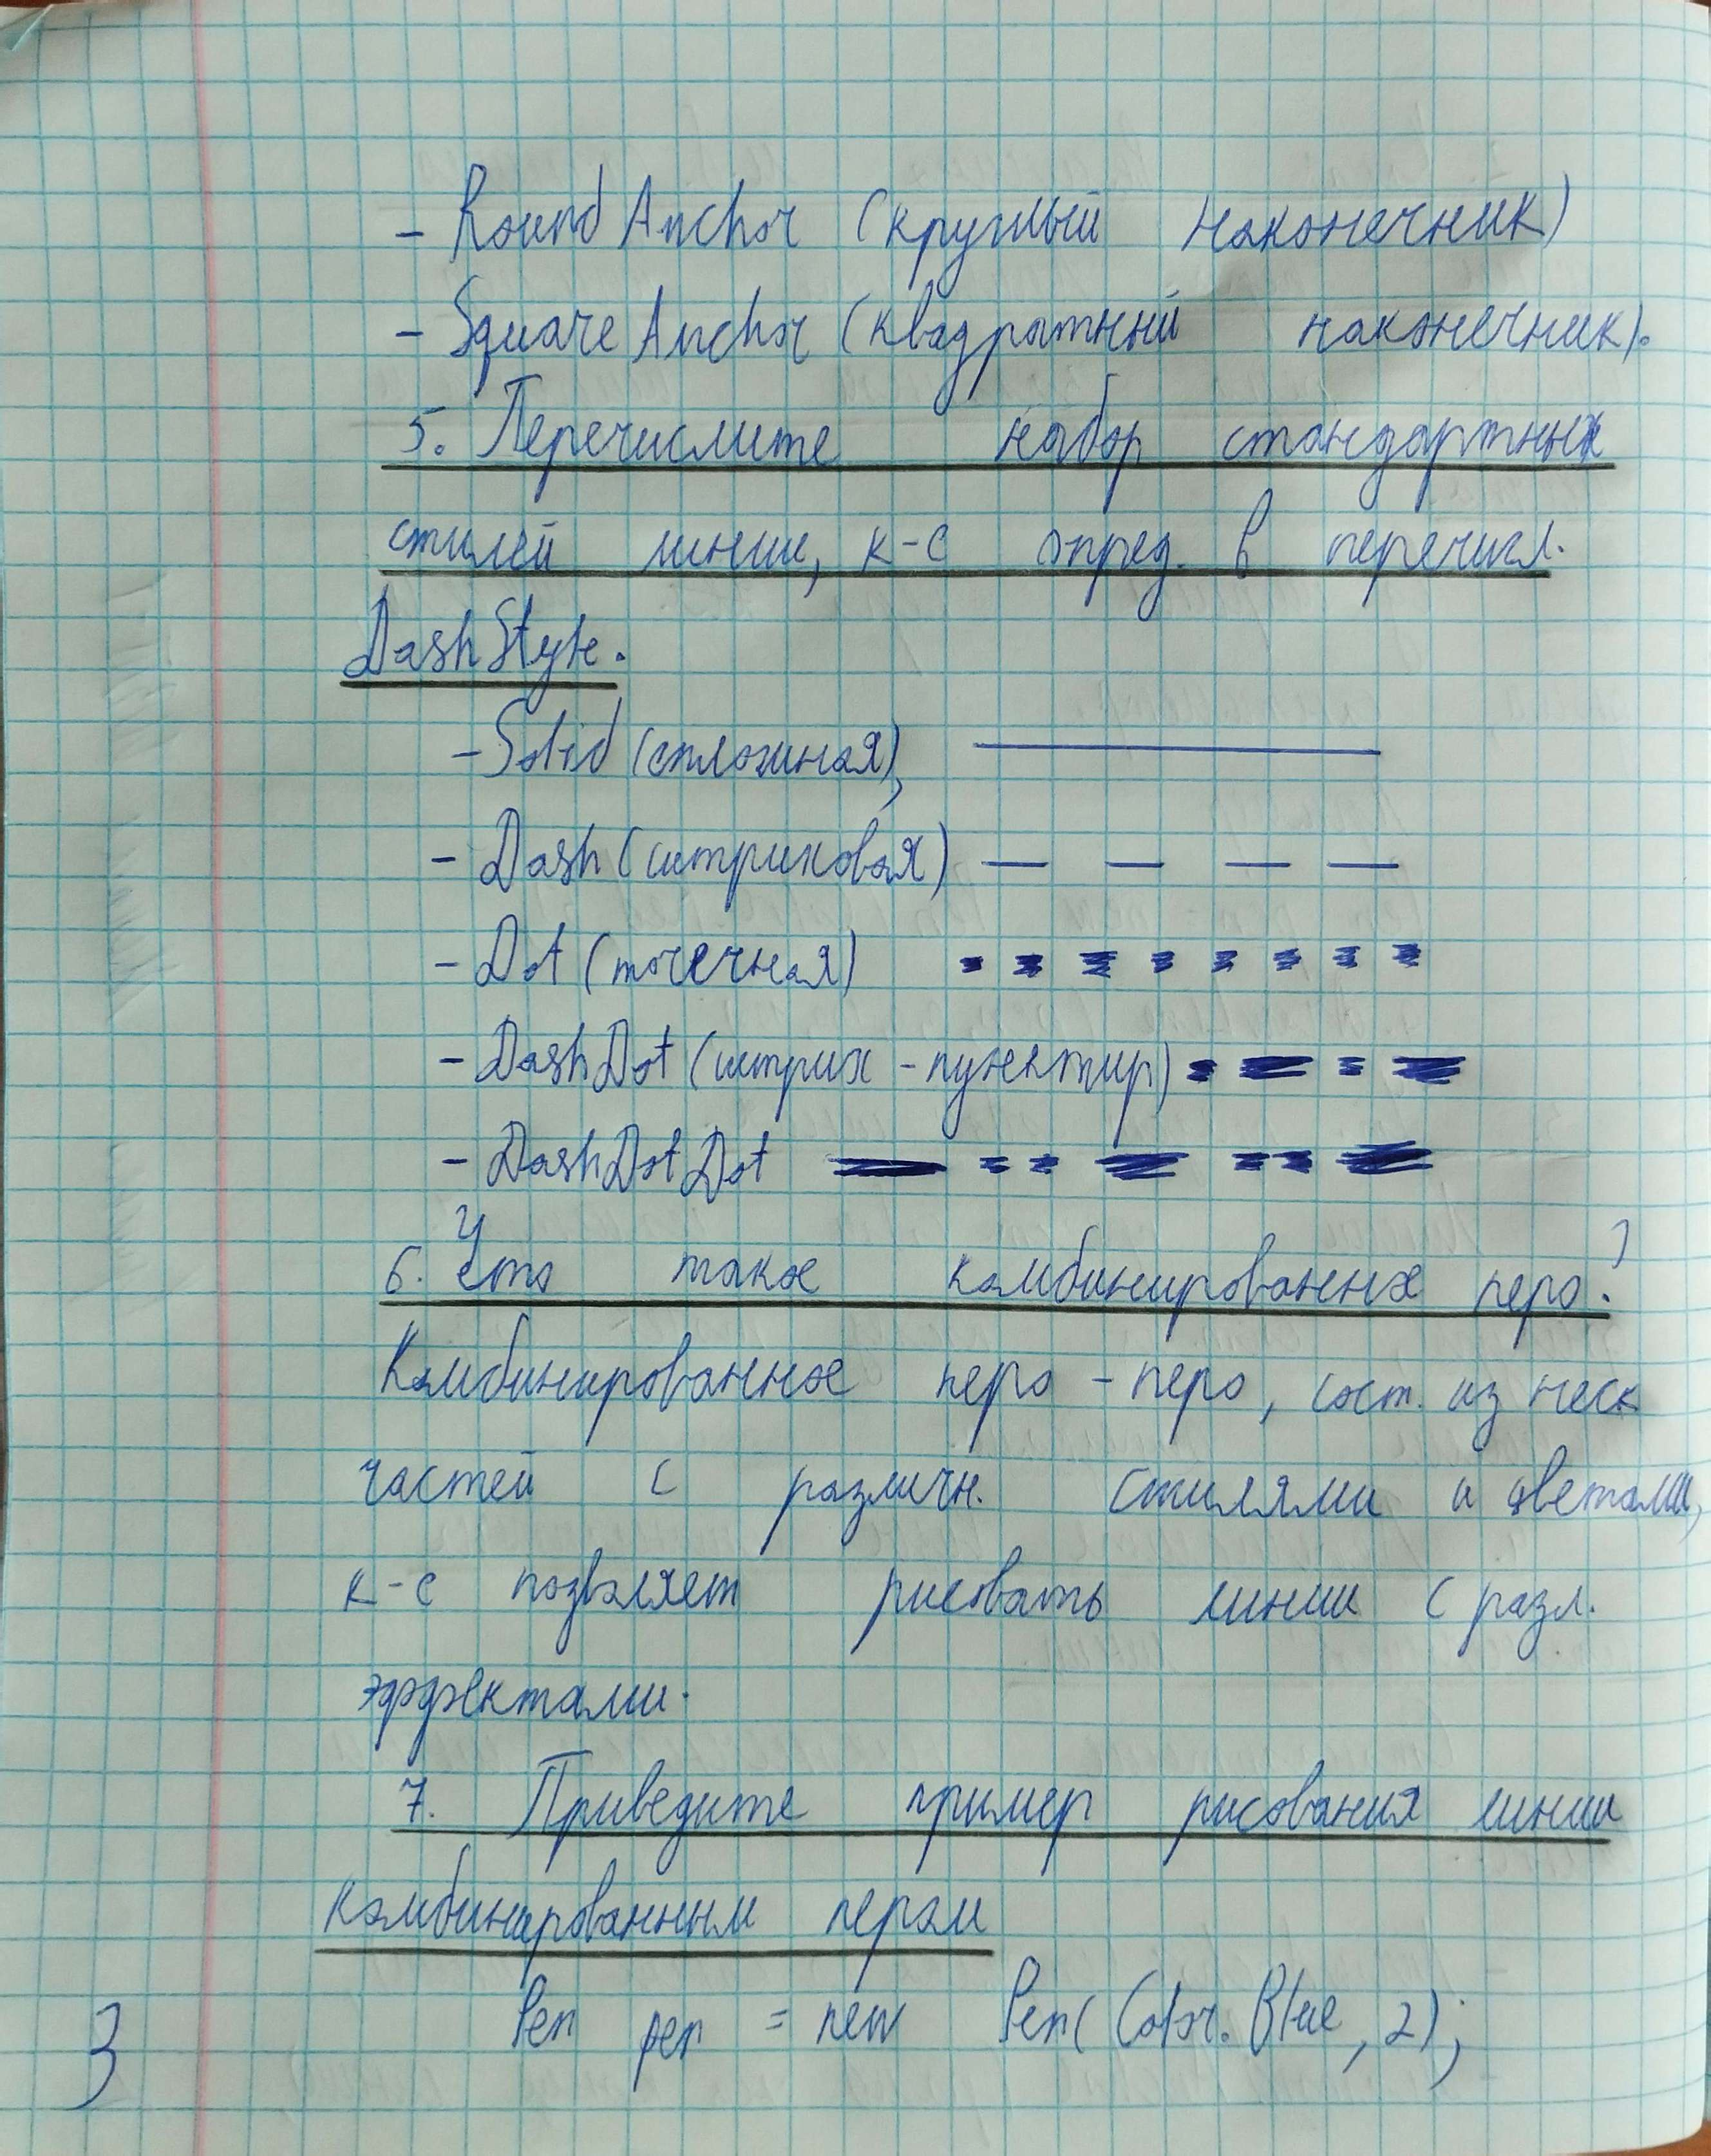 - RoundAnchor (круглый наконечник)
- SquareAnchor (квадратный наконечник).
5. Перечислите набор стандартных
стилей линии, к-е опред. в перечисл.
DashStyle.
- Solid (сплошная),
- Dash (штриховая)
- Dot (точечная)
- DashDot (штрих - пунктир)
- DashDotDot
6. Что такое комбинированное перо?
Комбинированное перо - перо, сост. из неск
частей с различн. стилями и цветами,
к-е позволяет рисовать линии с разл.
эффектами.
7. Приведите пример рисования линии
комбинированным пером
Pen pen = new Pen(Color.Blue, 2);
3